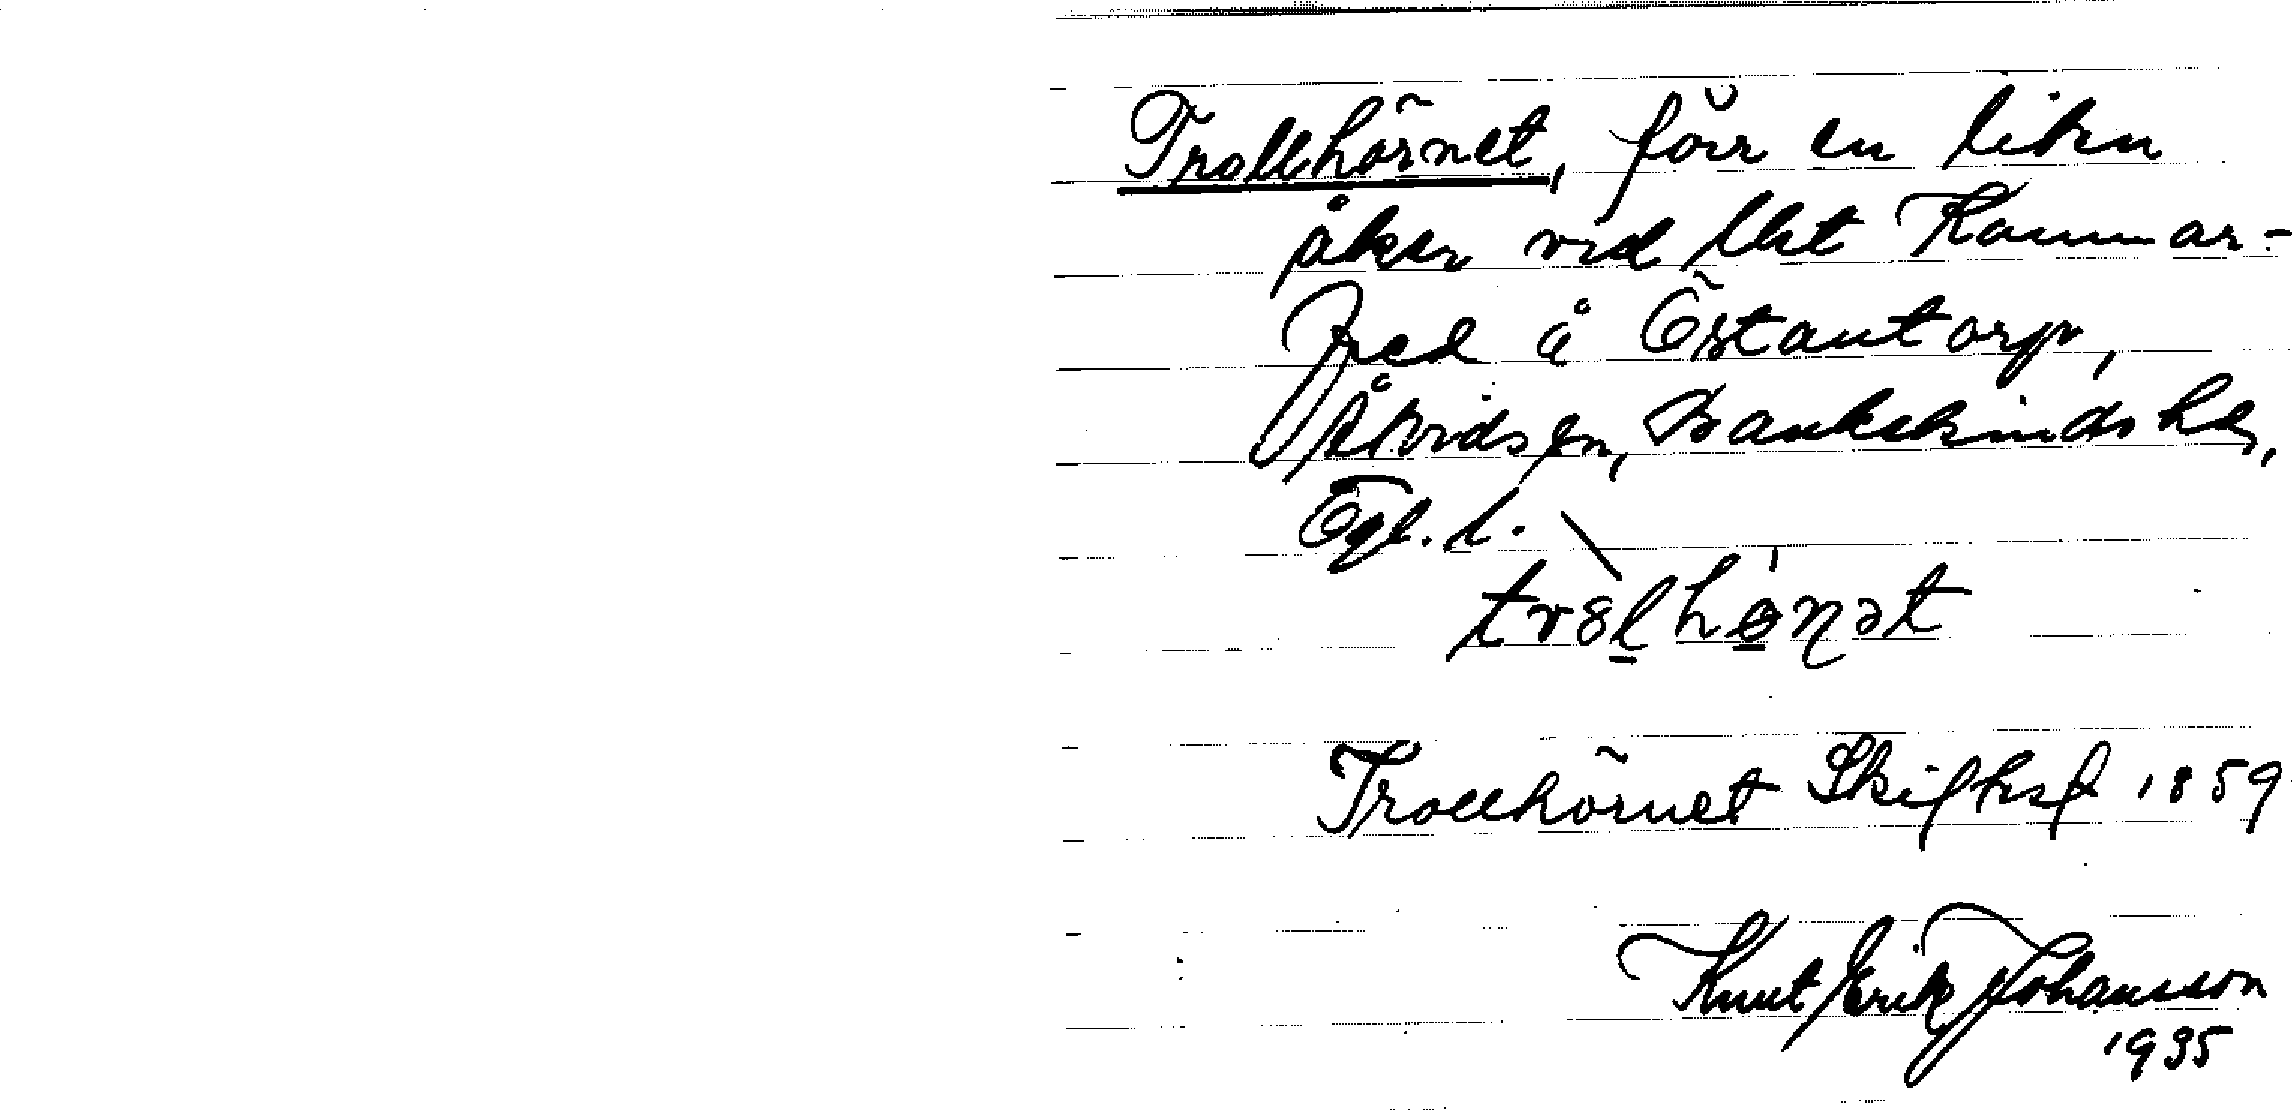 Trollhörnet, förr en liten
åker vid lht Kammar-
fred å Östantorp,
Åtvids sn, Bankekinds hd,
Ögl. l.
trolhönət
Trollhörnet Skifteshl 1859
Knut Erik Johansson
1935